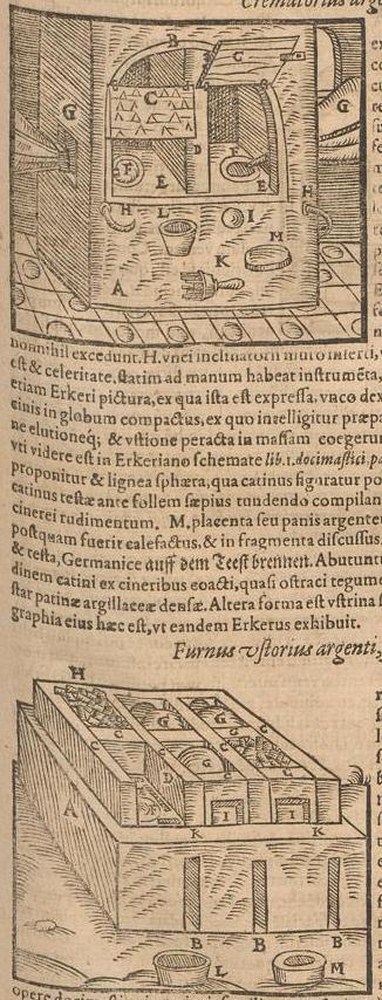 Crematorius arge
B
C
G
C
G
D
F
F
E
E
H
L
I
H
M
K
A
nonnihil excedunt. H. vnci inclinatorii muro inserti,
est & celeritate, statim ad manum habeat instrumẽta,
etiam Erkeri pictura, ex qua ista est expressa, vnco dex
cinis in globum compactus, ex quo intelligitur præpa
ne elutioneq; & vstione peracta in massam coegerun
vti videre est in Erkeriano schemate lib. 1. docimastici, pa
proponitur & lignea sphæra, qua catinus figuratur po
catinus testæ ante follem sæpius tundendo compilan
cinerei rudimentum. M. placenta seu panis argente
postquam fuerit calefactus, & in fragmenta discussus
& testa, Germanice auff dem Teest brennen. Abutunt
dinem catini ex cineribus coacti, quasi ostraci tegume
star patinæ argillaceæ densæ. Altera forma est vstrina s
graphia eius hæc est, vt eandem Erkerus exhibuit.
Furnus vstorius argenti,
H
G
G
C
C
C
D
G
C
C
C
A
I
I
K
K
B
B
B
L
M